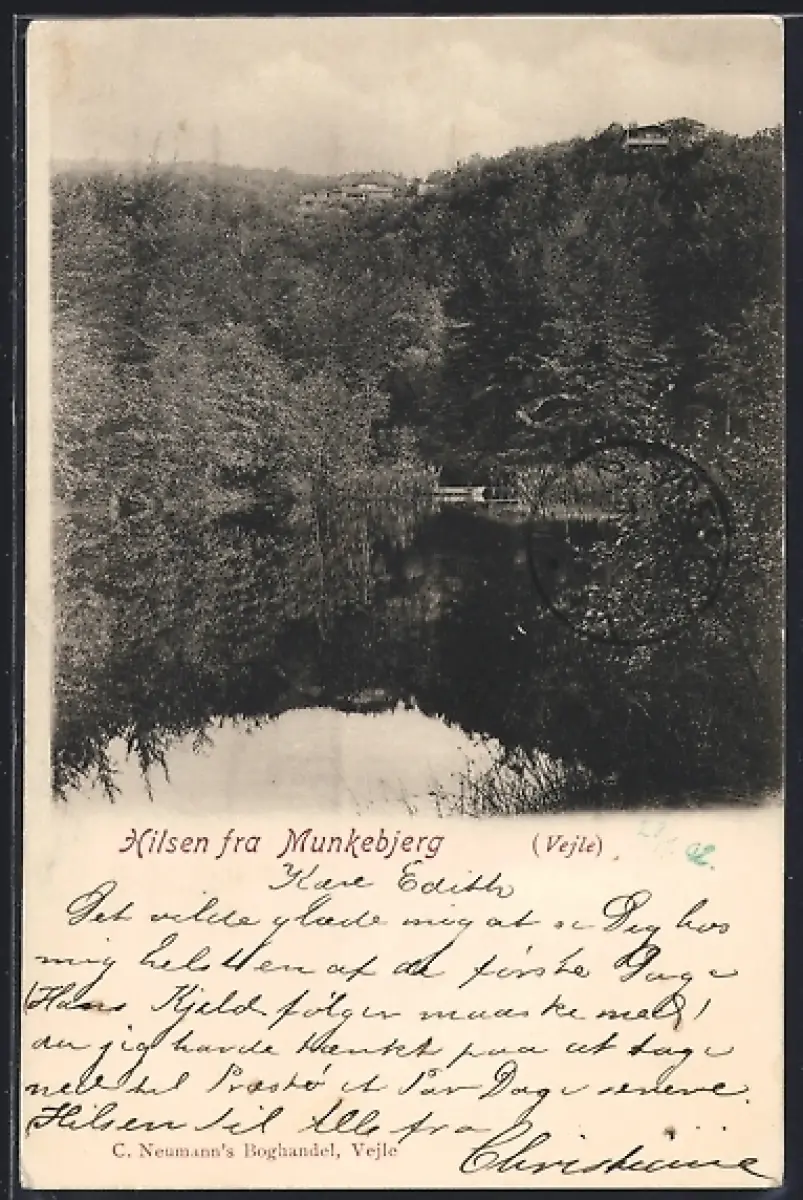 Hilsen fra Munkebjerg (Vejle)
Kære Edith
Det vilde glæde mig at se Dig hos
mig helst en af de første Dage
(Hans Kjeld følger maaske med)
da jeg havde tænkt paa at tage
ned til Præstø et Par Dage senere.
Hilsen til Alle fra
Christiane
C. Neumann's Boghandel, Vejle